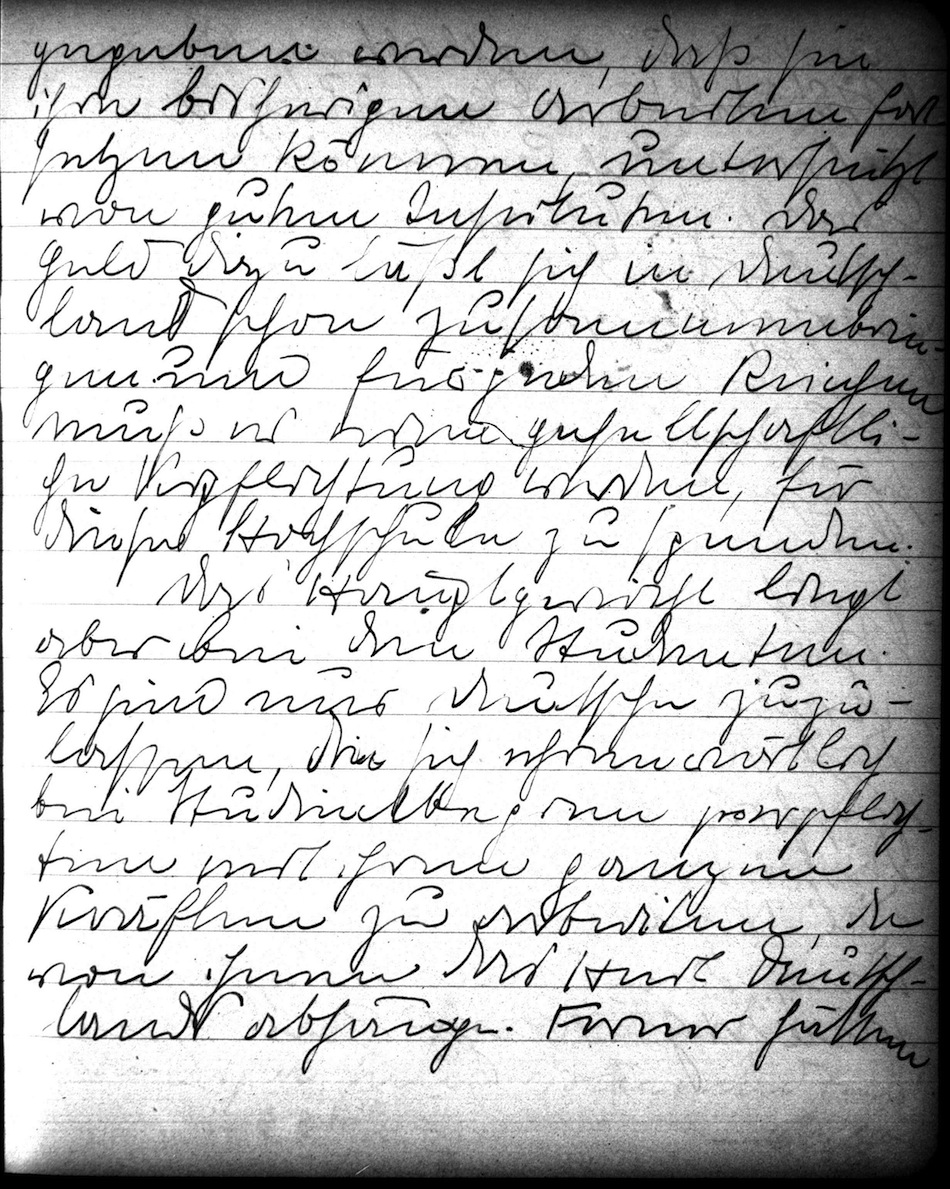 gegeben werden, daß sie
ihre bisherigen Arbeiten fort
setzen können, unterstützt
von guten Instituten. Das
Geld dazu läßt sich in Deutsch-
land schon zusammenbrin-
gen und für jeden Reichen
muß es eine gesellschaftli-
che Verpflichtung werden, für
diese Hochschule zu spenden.
Das Hauptgewicht liegt
aber bei den Studenten.
Es sind nur Deutsche zuzu-
lassen, die sich ehrenwörtlich
bei Studienbeginn verpflich-
ten mit ihren ganzen
Kräften zu arbeiten, da
von ihnen das Heil Deutsch-
lands abhänge. Ferner hätten